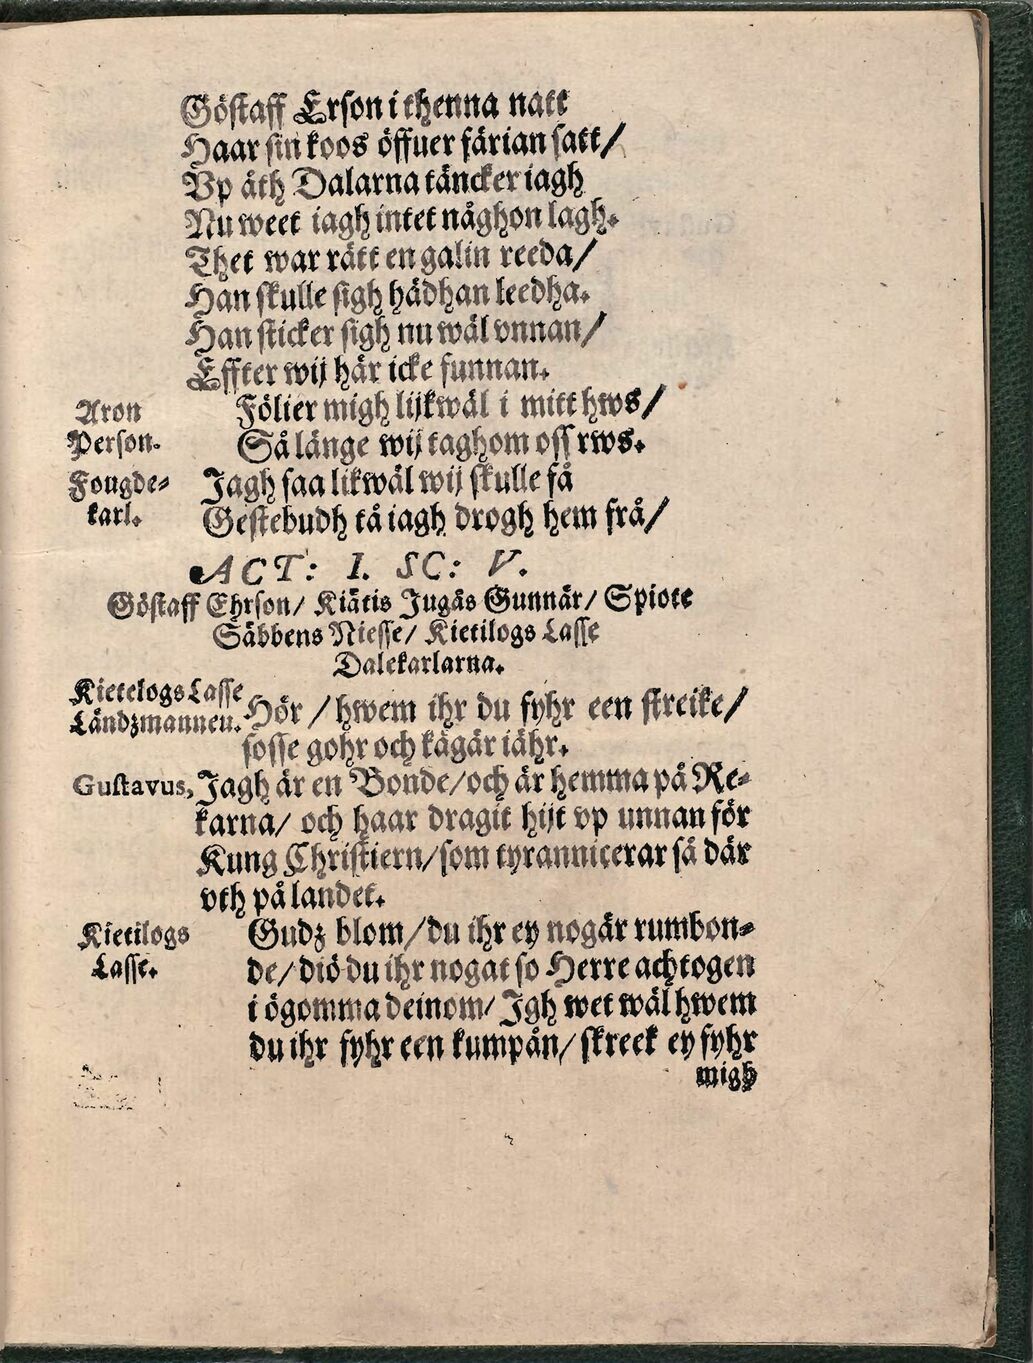 Göstaff Erson i thenna natt
Haar sin koos öffuer färian satt/
Vp åth Dalarna täncker iagh
Nu weet iagh intet någhon lagh.
Thet war rätt en galin reeda/
Han skulle sigh hädhan leedha.
Han sticker sigh nu wäl vnnan/
Effter wij här icke funnan.
Aron Person. Fölier migh lijkwäl i mitt hws/
Så länge wij taghom oss rws.
Fougde-karl. Jagh saa likwäl wij skulle få
Gestebudh tå iagh drogh hem frå/
ACT: I. SC: V.
Göstaff Ehrson/ Kiätis Jugås Gunnär/ Spiote
Säbbens Niesse/ Kietilogs Lasse
Dalekarlarna.
Kietelogs Lasse Ländzmannen. Hör / hwem ihr du fyhr een streike/
sosse gohr och kågår iähr.
Gustavus, Jagh är en Bonde/och är hemma på Re-
karna/ och haar dragit hijt vp unnan för
Kung Christiern/som tyrannicerar så där
vth på landet.
Kietilogs Lasse. Gudz blom/du ihr ey nogär rumbon-
de/diö du ihr nogat so Herre achtogen
i ögomma deinom/ Jgh wet wäl hwem
du ihr fyhr een kumpån/ skreek ey fyhr
migh